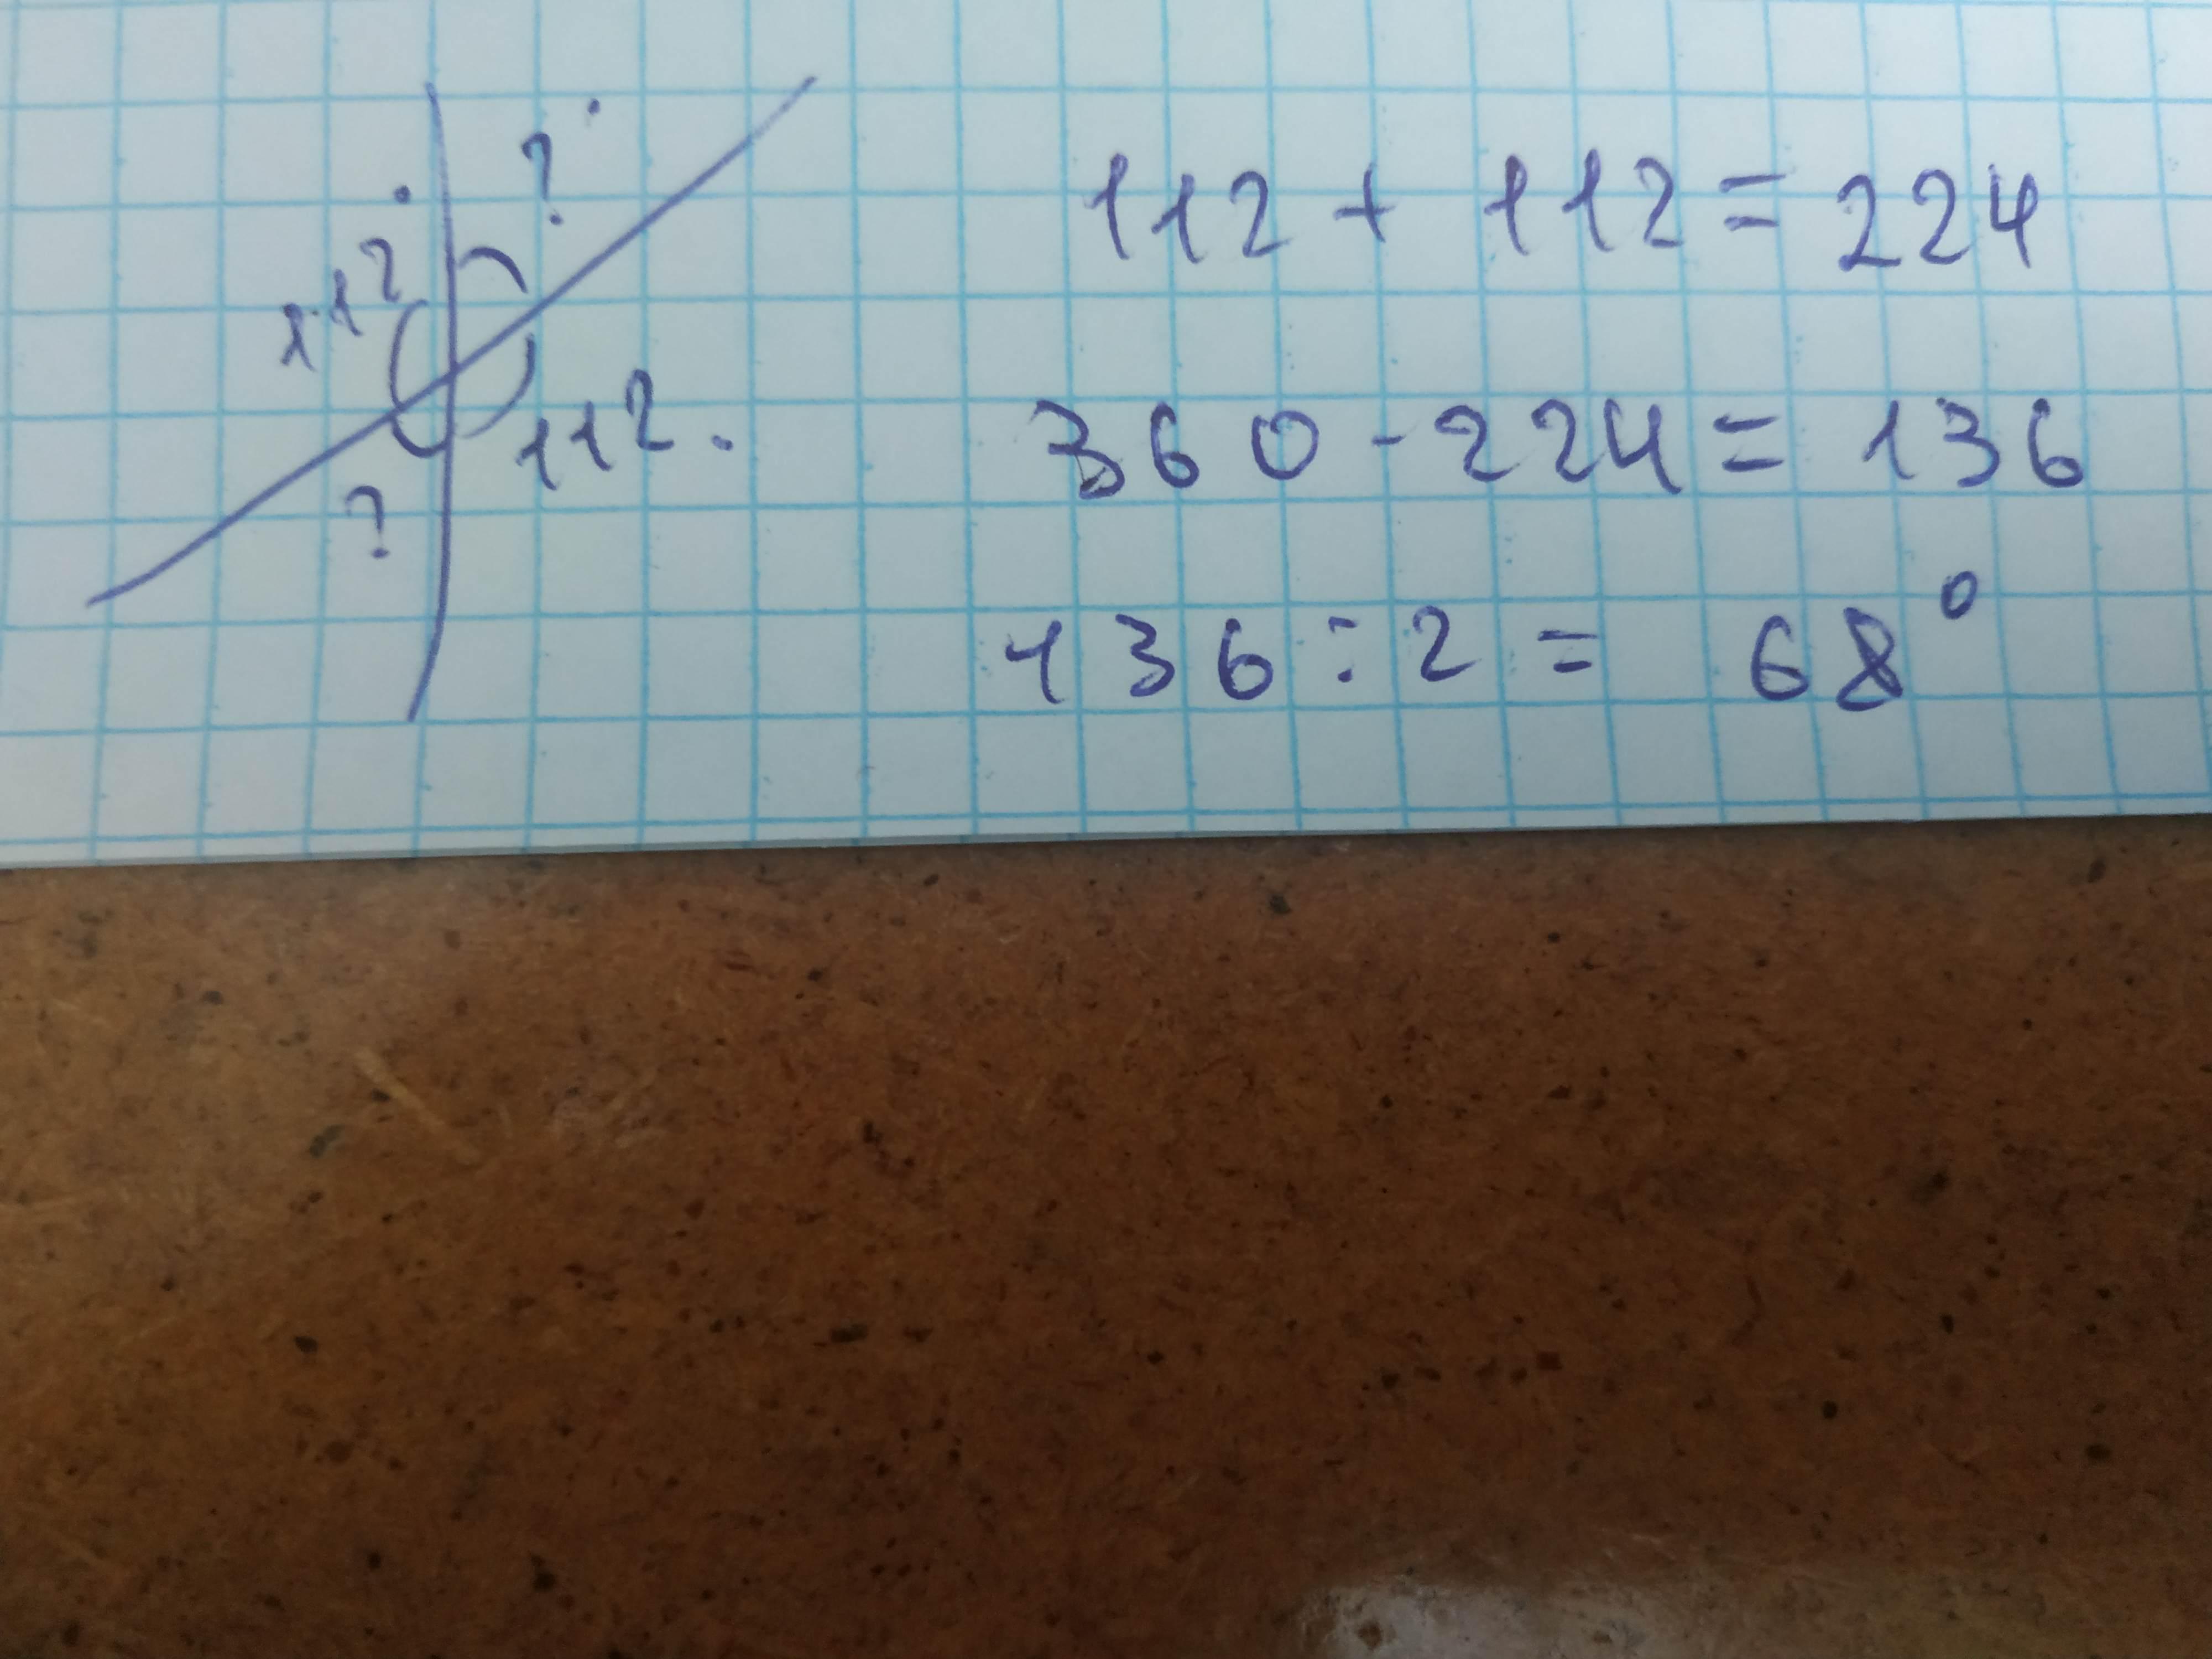 ?
112
112.
?
112 + 112 = 224
360 - 224 = 136
136 : 2 = 68°